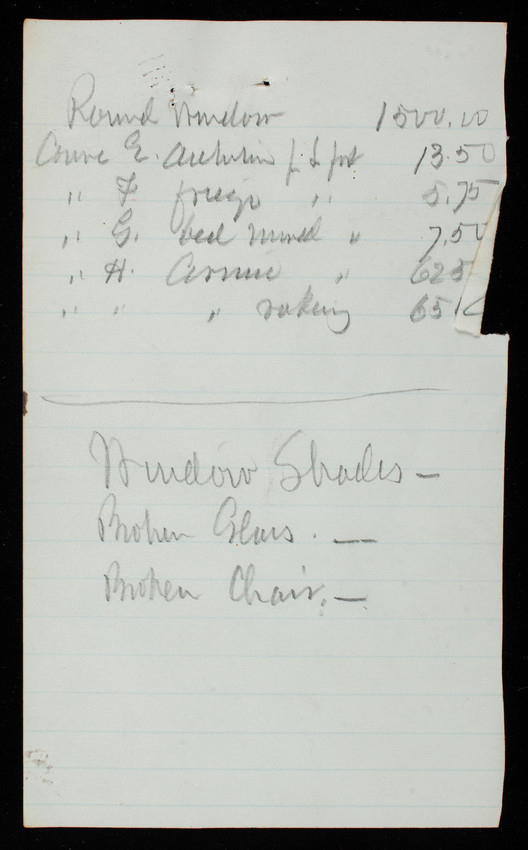 Round Window 1500.00
Course E. architrave p. L foot 13.50
" F frieze " 5.75
" G. bed mould " 7.50
" H. Cornice " 6 25
" " " raking 6 5
Window Shades —
Broken Glass. —
Broken Chair. —